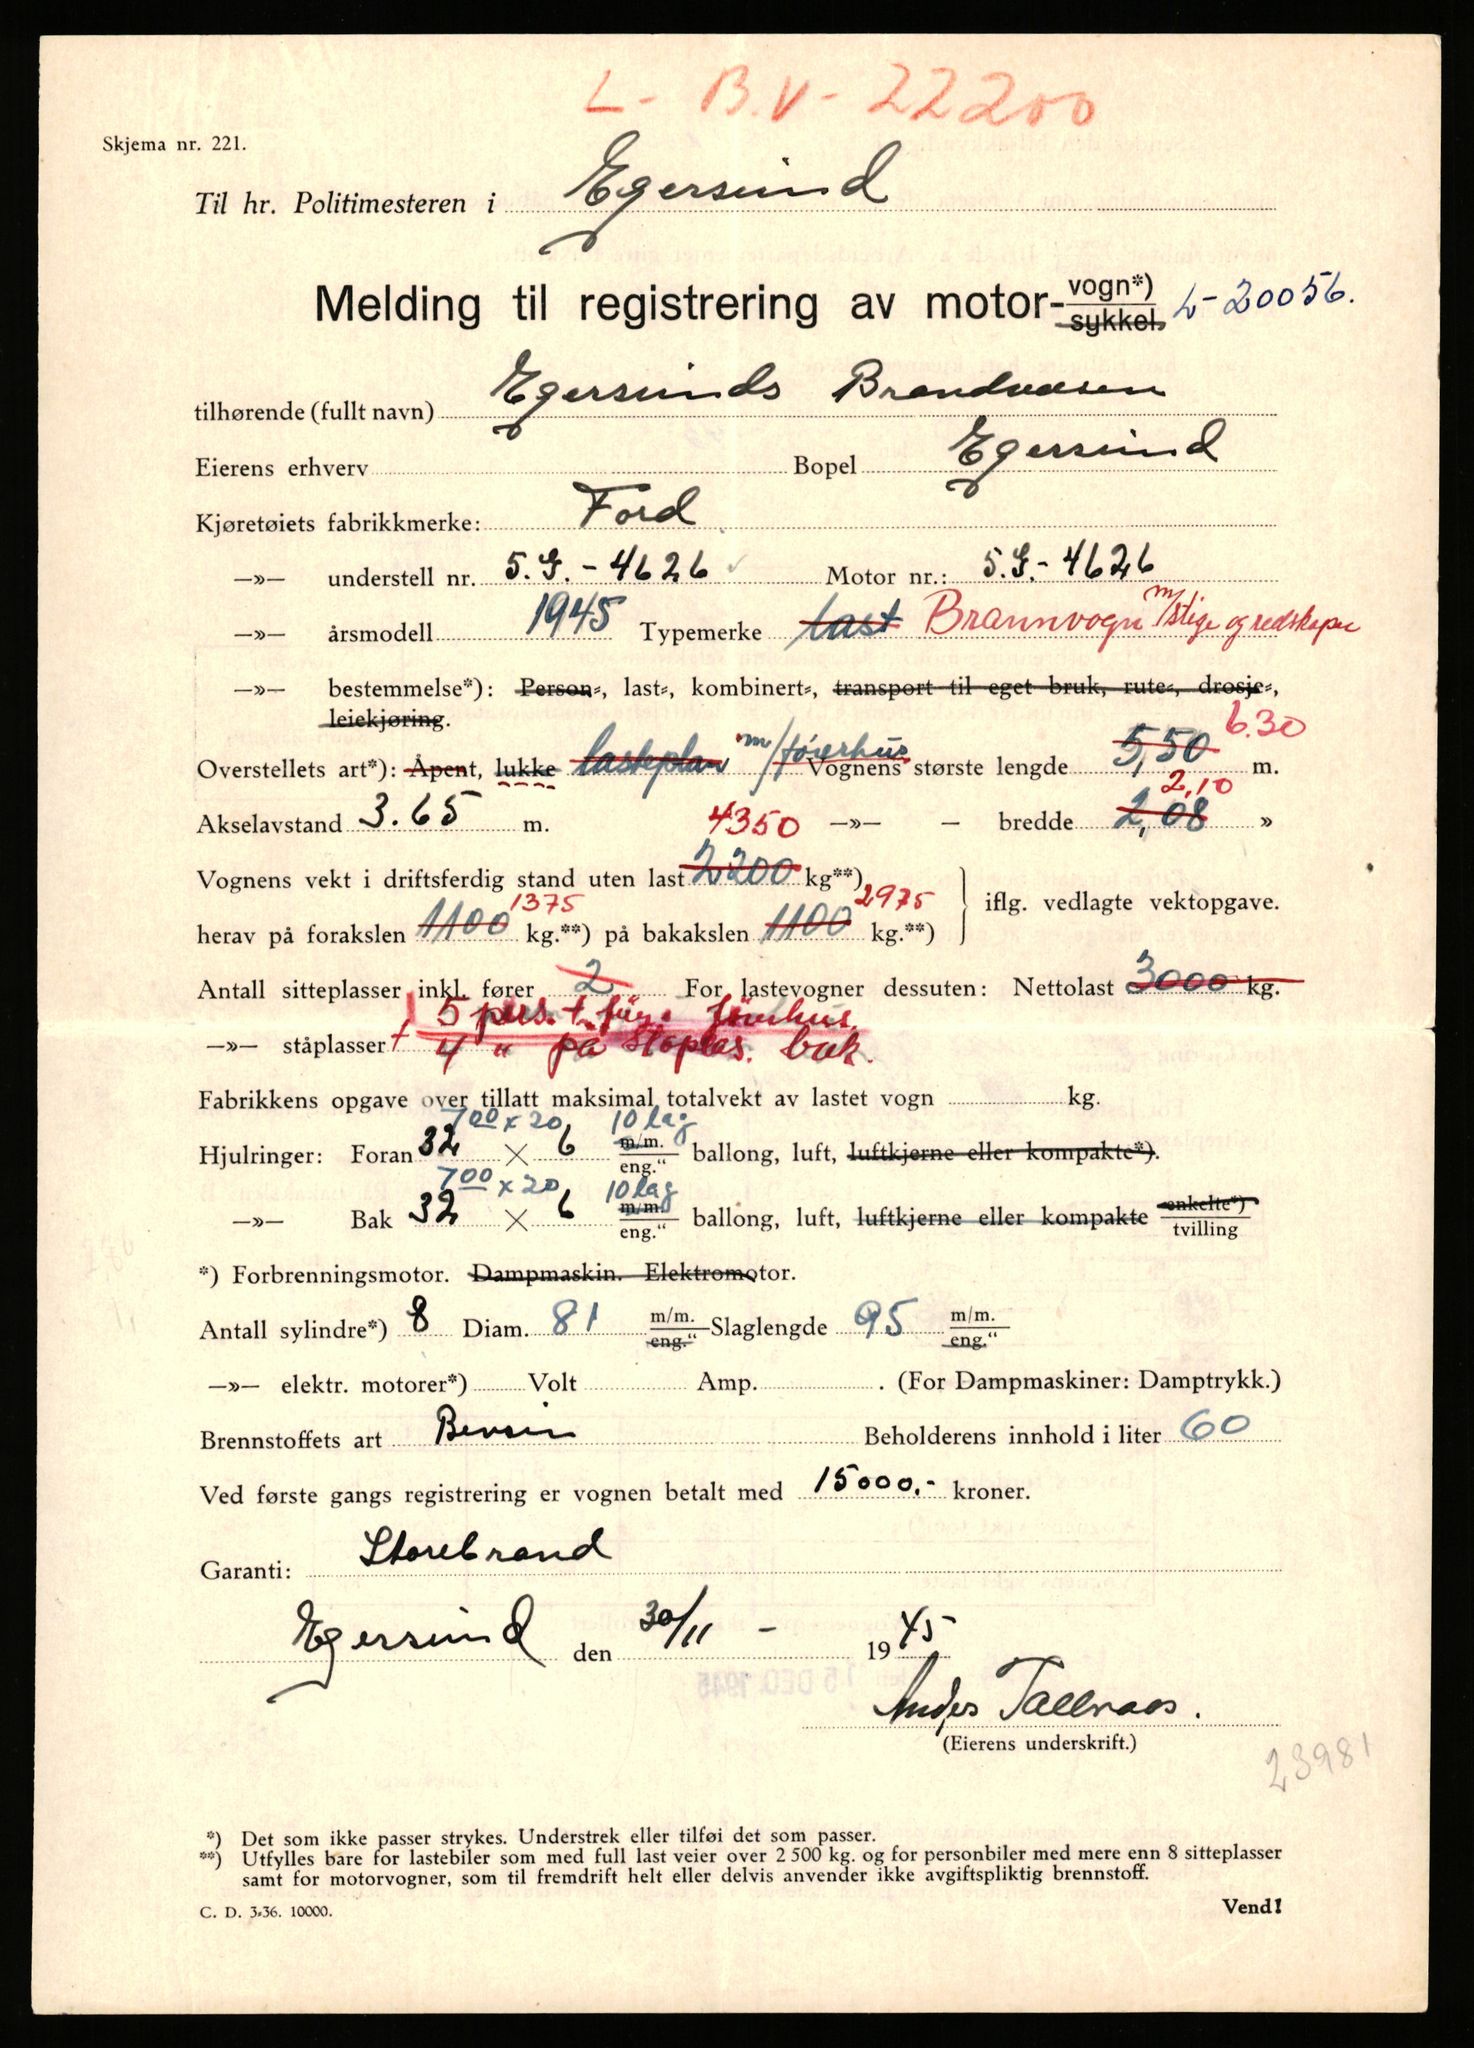 L - B.V - 22200
Skjema nr. 221.
Til hr. Politimesteren i Egersund
Melding til registrering av motor-vogn*) sykkel. L-20056.
tilhørende (fullt navn) Egersunds Brandvæsen
Eierens erhverv Bopel Egersund
Kjøretøiets fabrikkmerke: Ford
—»— understell nr. 5.G.-4626 Motor nr.: 5.G.-4626
—»— årsmodell 1945 Typemerke last Brannvogn m/stige og redskaper
—»— bestemmelse*): Person-, last-, kombinert-, transport til eget bruk, rute-, drosje-,
leiekjøring.
6.30
Overstellets art*): Åpent, lukke lasteplan m/førerhus Vognens største lengde 5,50 m.
2,10
Akselavstand 3.65 m. —»— — bredde 2,08 »
4350
Vognens vekt i driftsferdig stand uten last 2200 kg**)
1375 2975
herav på forakslen 1100 kg.**) på bakakslen 1100 kg.**)
iflg. vedlagte vektopgave.
Antall sitteplasser inkl. fører 2 For lastevogner dessuten: Nettolast 3000 kg.
5 pers. førerhus.
—»— ståplasser 4 " på ståplas. bak.
Fabrikkens opgave over tillatt maksimal totalvekt av lastet vogn kg.
7.00 x 20 10 lag
Hjulringer: Foran 32 × 6 m/m. eng.“ ballong, luft, luftkjerne eller kompakte*).
7.00 x 20 10 lag
—»— Bak 32 × 6 m/m eng.“ ballong, luft, luftkjerne eller kompakte enkelte*) tvilling
*) Forbrenningsmotor. Dampmaskin. Elektromotor.
Antall sylindre*) 8 Diam. 81 m/m. eng.“ Slaglengde 95 m/m. eng.“
—»— elektr. motorer*) Volt Amp. . (For Dampmaskiner: Damptrykk.)
Brennstoffets art Bensin Beholderens innhold i liter 60
Ved første gangs registrering er vognen betalt med 15000.- kroner.
Garanti: Storebrand
Egersund den 30/11 - 1945
Tallvaas.
(Eierens underskrift.)
23981
*) Det som ikke passer strykes. Understrek eller tilføi det som passer.
**) Utfylles bare for lastebiler som med full last veier over 2 500 kg. og for personbiler med mere enn 8 sitteplasser
samt for motorvogner, som til fremdrift helt eller delvis anvender ikke avgiftspliktig brennstoff.
C. D. 3-36. 10000.
Vend!